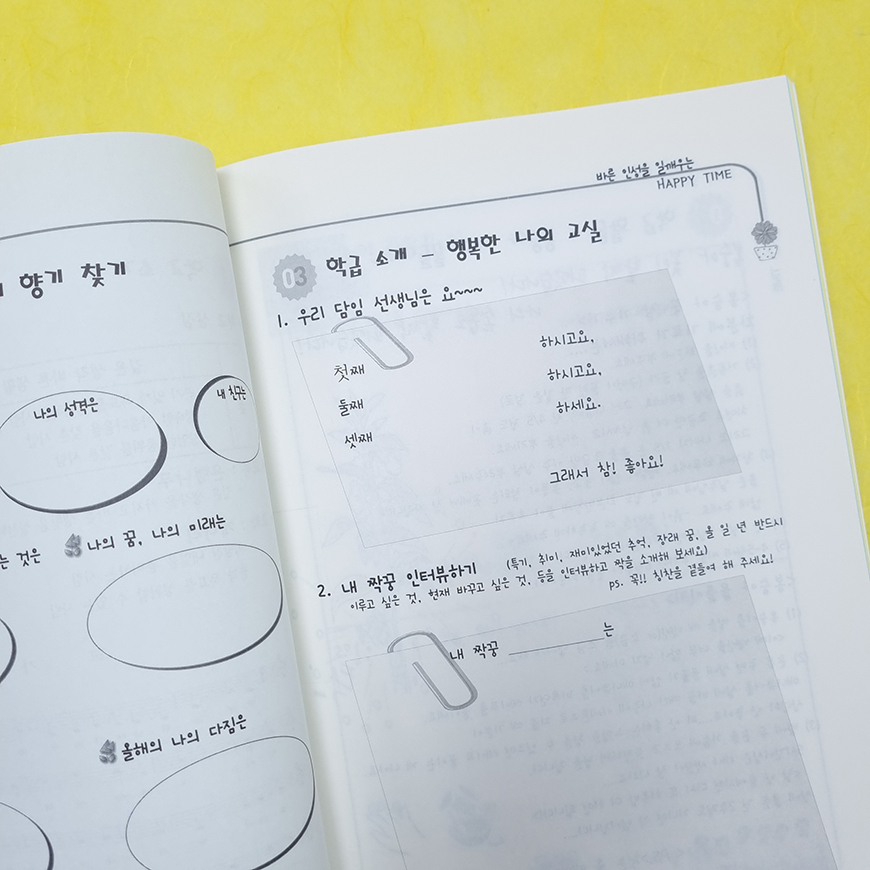 향기 찾기
나의 성격은
내 친구는
는 것은
나의 꿈, 나의 미래는
올해의 나의 다짐은
바른 인성을 일깨우는
HAPPY TIME
03 학급 소개 – 행복한 나의 교실
1. 우리 담임 선생님은 요~~~
첫째 하시고요,
둘째 하시고요,
셋째 하세요.
그래서 참! 좋아요!
2. 내 짝꿍 인터뷰하기 (특기, 취미, 재미있었던 추억, 장래 꿈, 올 일 년 반드시
이루고 싶은 것, 현재 바꾸고 싶은 것, 등을 인터뷰하고 짝을 소개해 보세요)
ps. 꼭!! 칭찬을 곁들여 해 주세요!
내 짝꿍 __________는